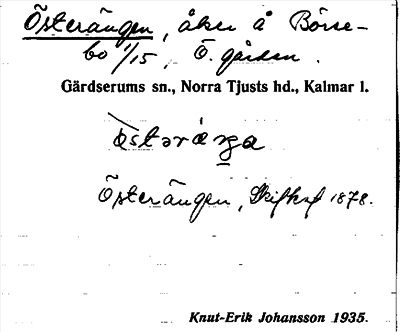 Österängen, åker å Börse-
bo 1/15, Ö. gården.
Gärdserums sn., Norra Tjusts hd., Kalmar l.
Österängen, Skifksf 1878.
Knut-Erik Johansson 1935.